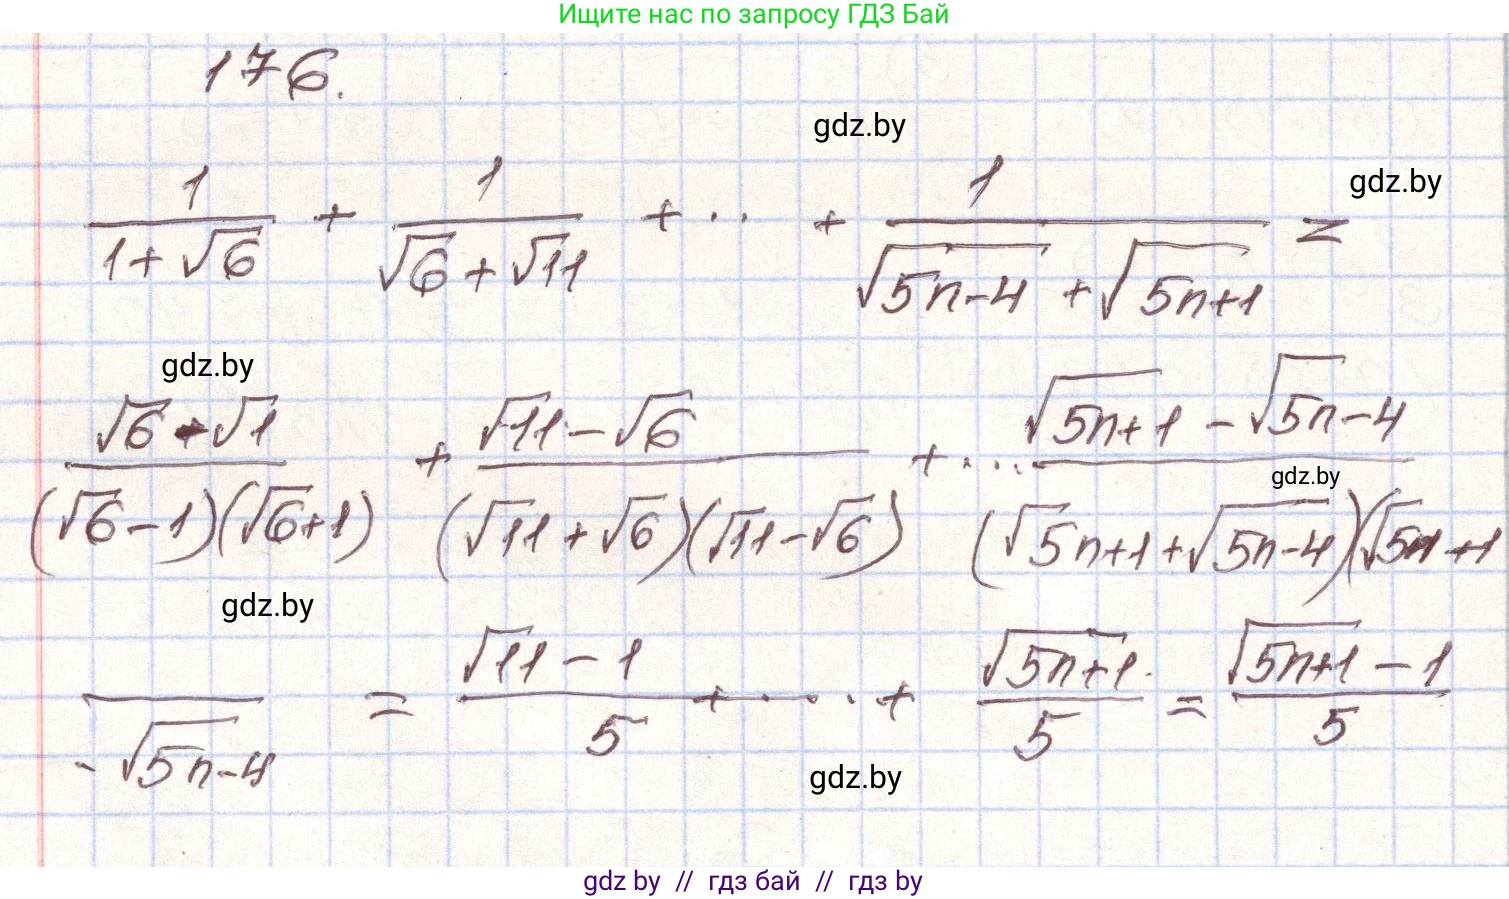 Ищите нас по запросу ГДЗ Бай
176.
gdz.by
gdz.by
1/(1+√6) + 1/(√6+√11) + .. + 1/(√(5n-4) + √(5n+1)) =
gdz.by
(√6-√1)/((√6-1)(√6+1)) + (√11-√6)/((√11+√6)(√11-√6)) + ... (√(5n+1) - √(5n-4))/((√(5n+1)+√(5n-4))(√(5n+1)
gdz.by
gdz.by
-√(5n-4)) = (√11-1)/5 + ... + √(5n+1)/5 = (√(5n+1)-1)/5
gdz.by
gdz by // гдз бай // гдз by